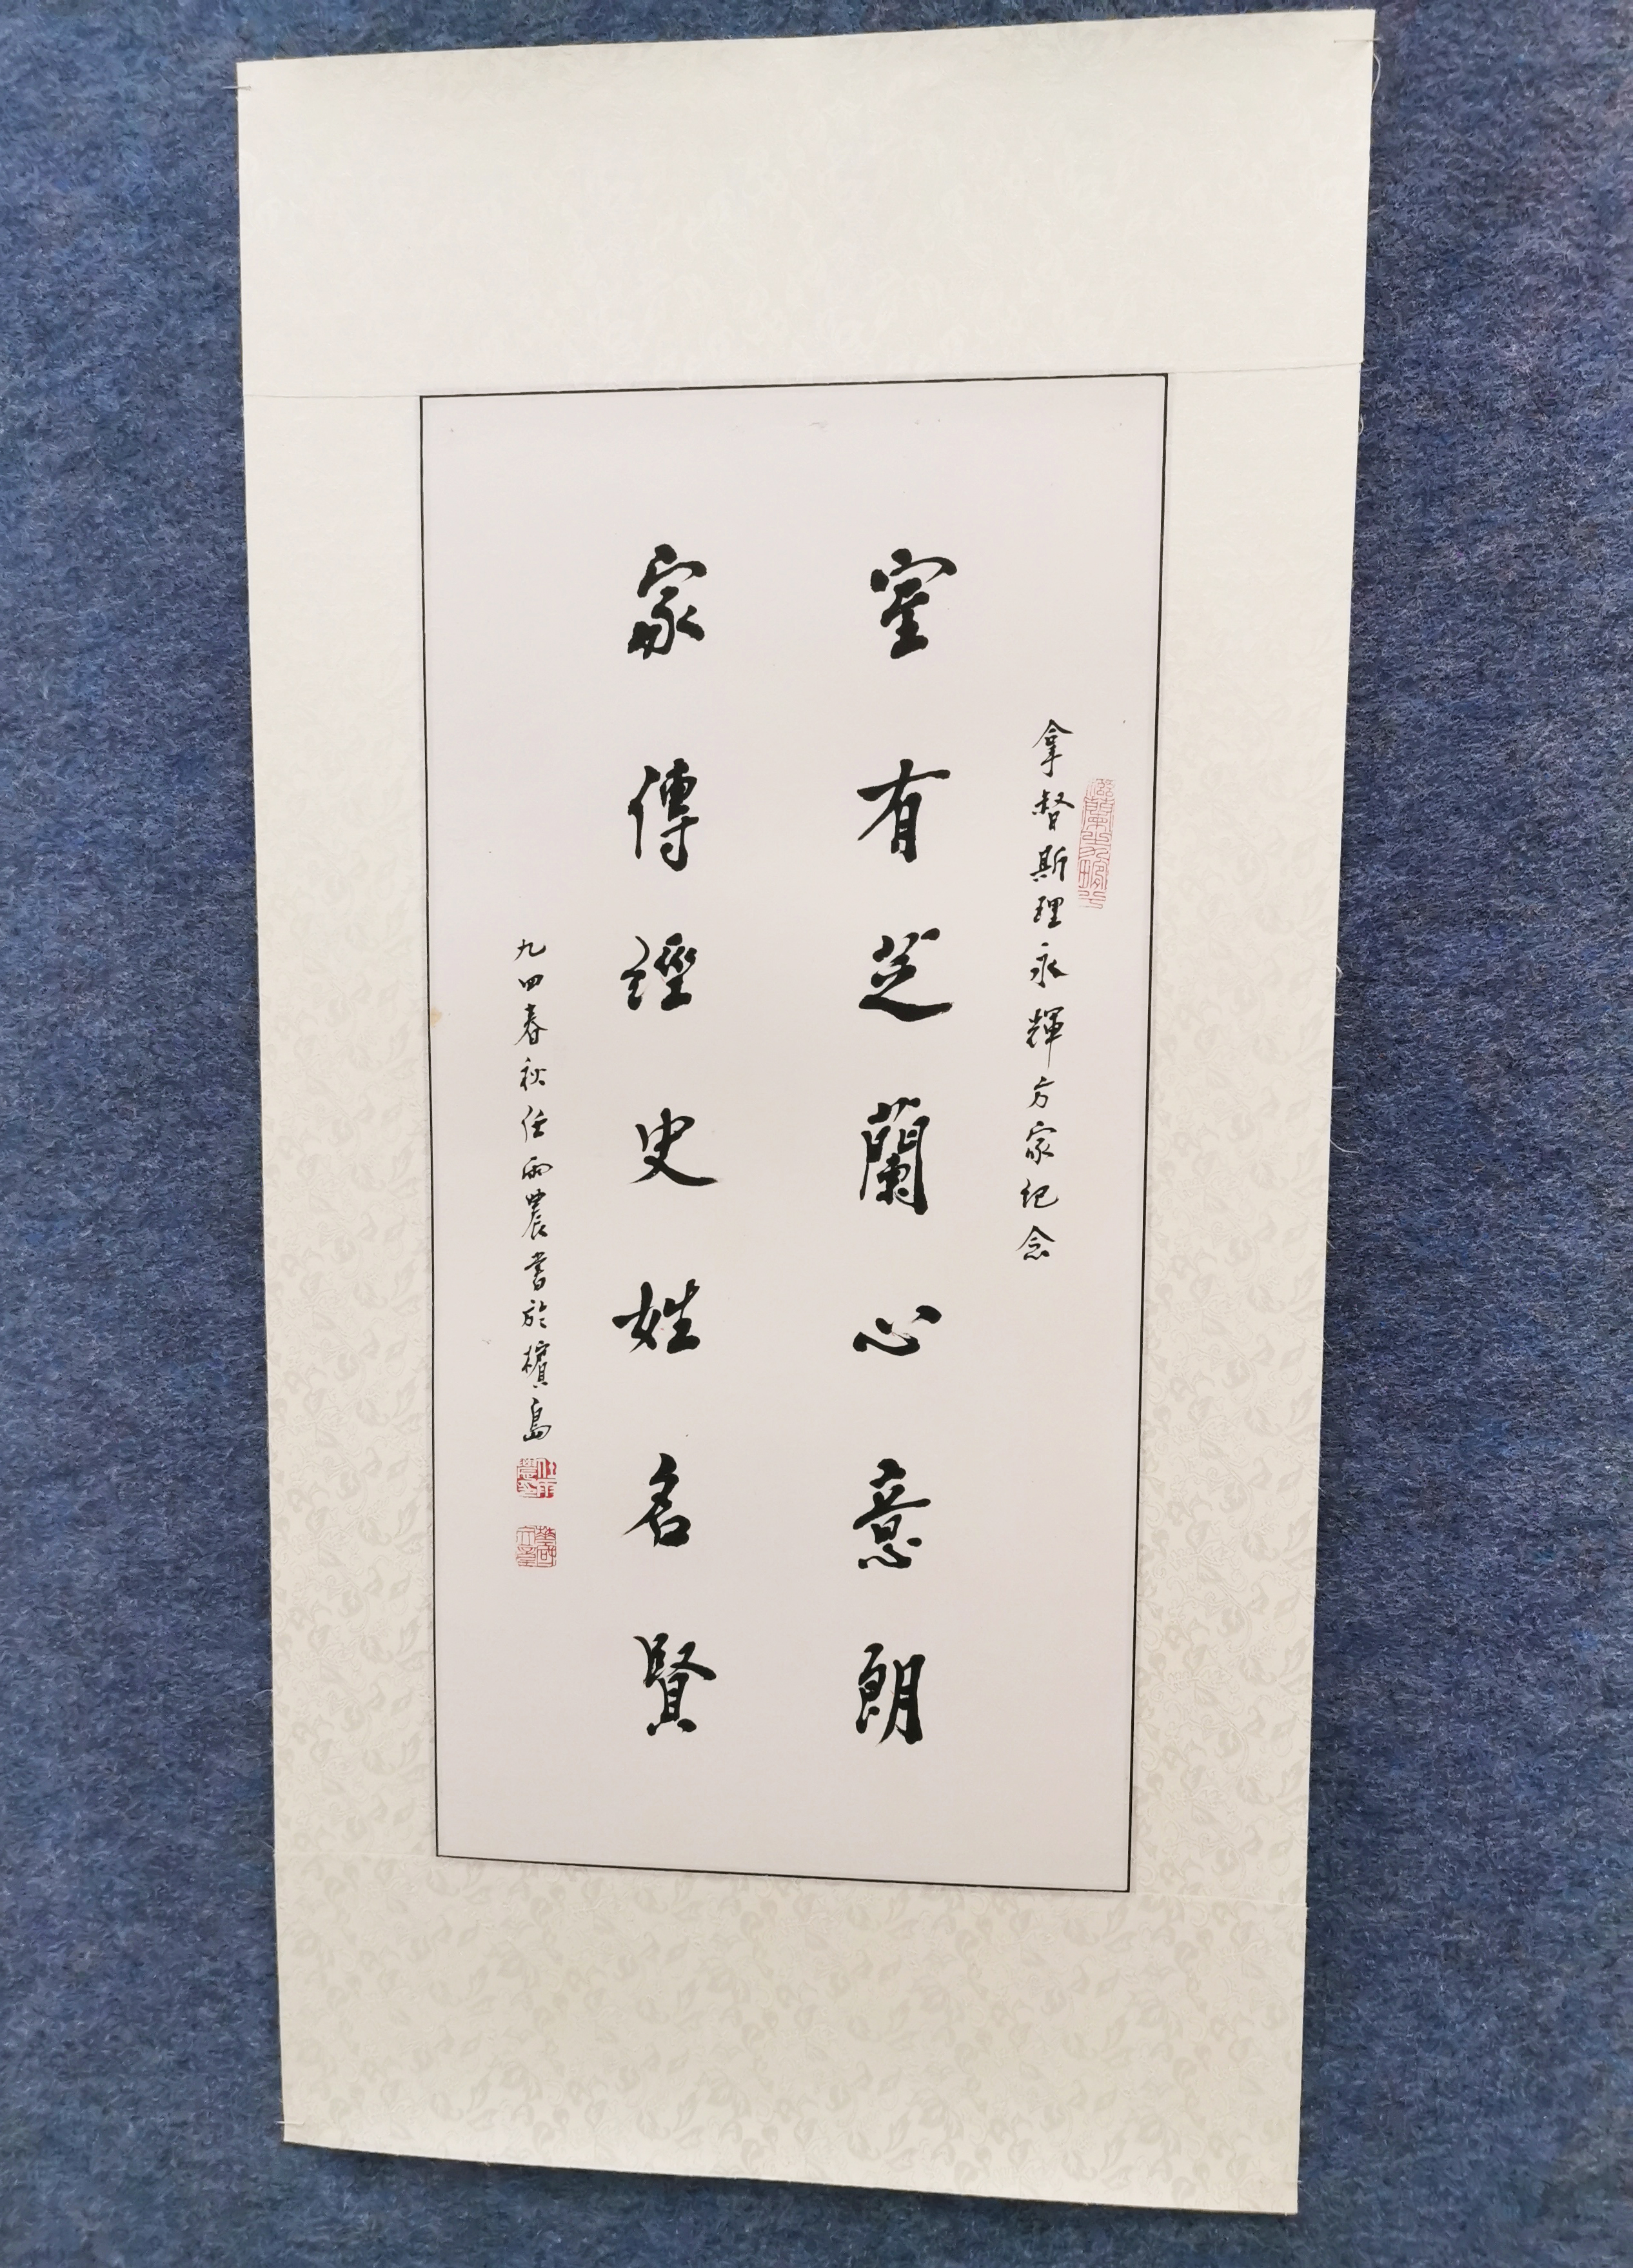 拿督斯理永輝方家紀念
室有芝蘭心意朗
家傳經史姓名賢
九四春秋任雨農書於檳島